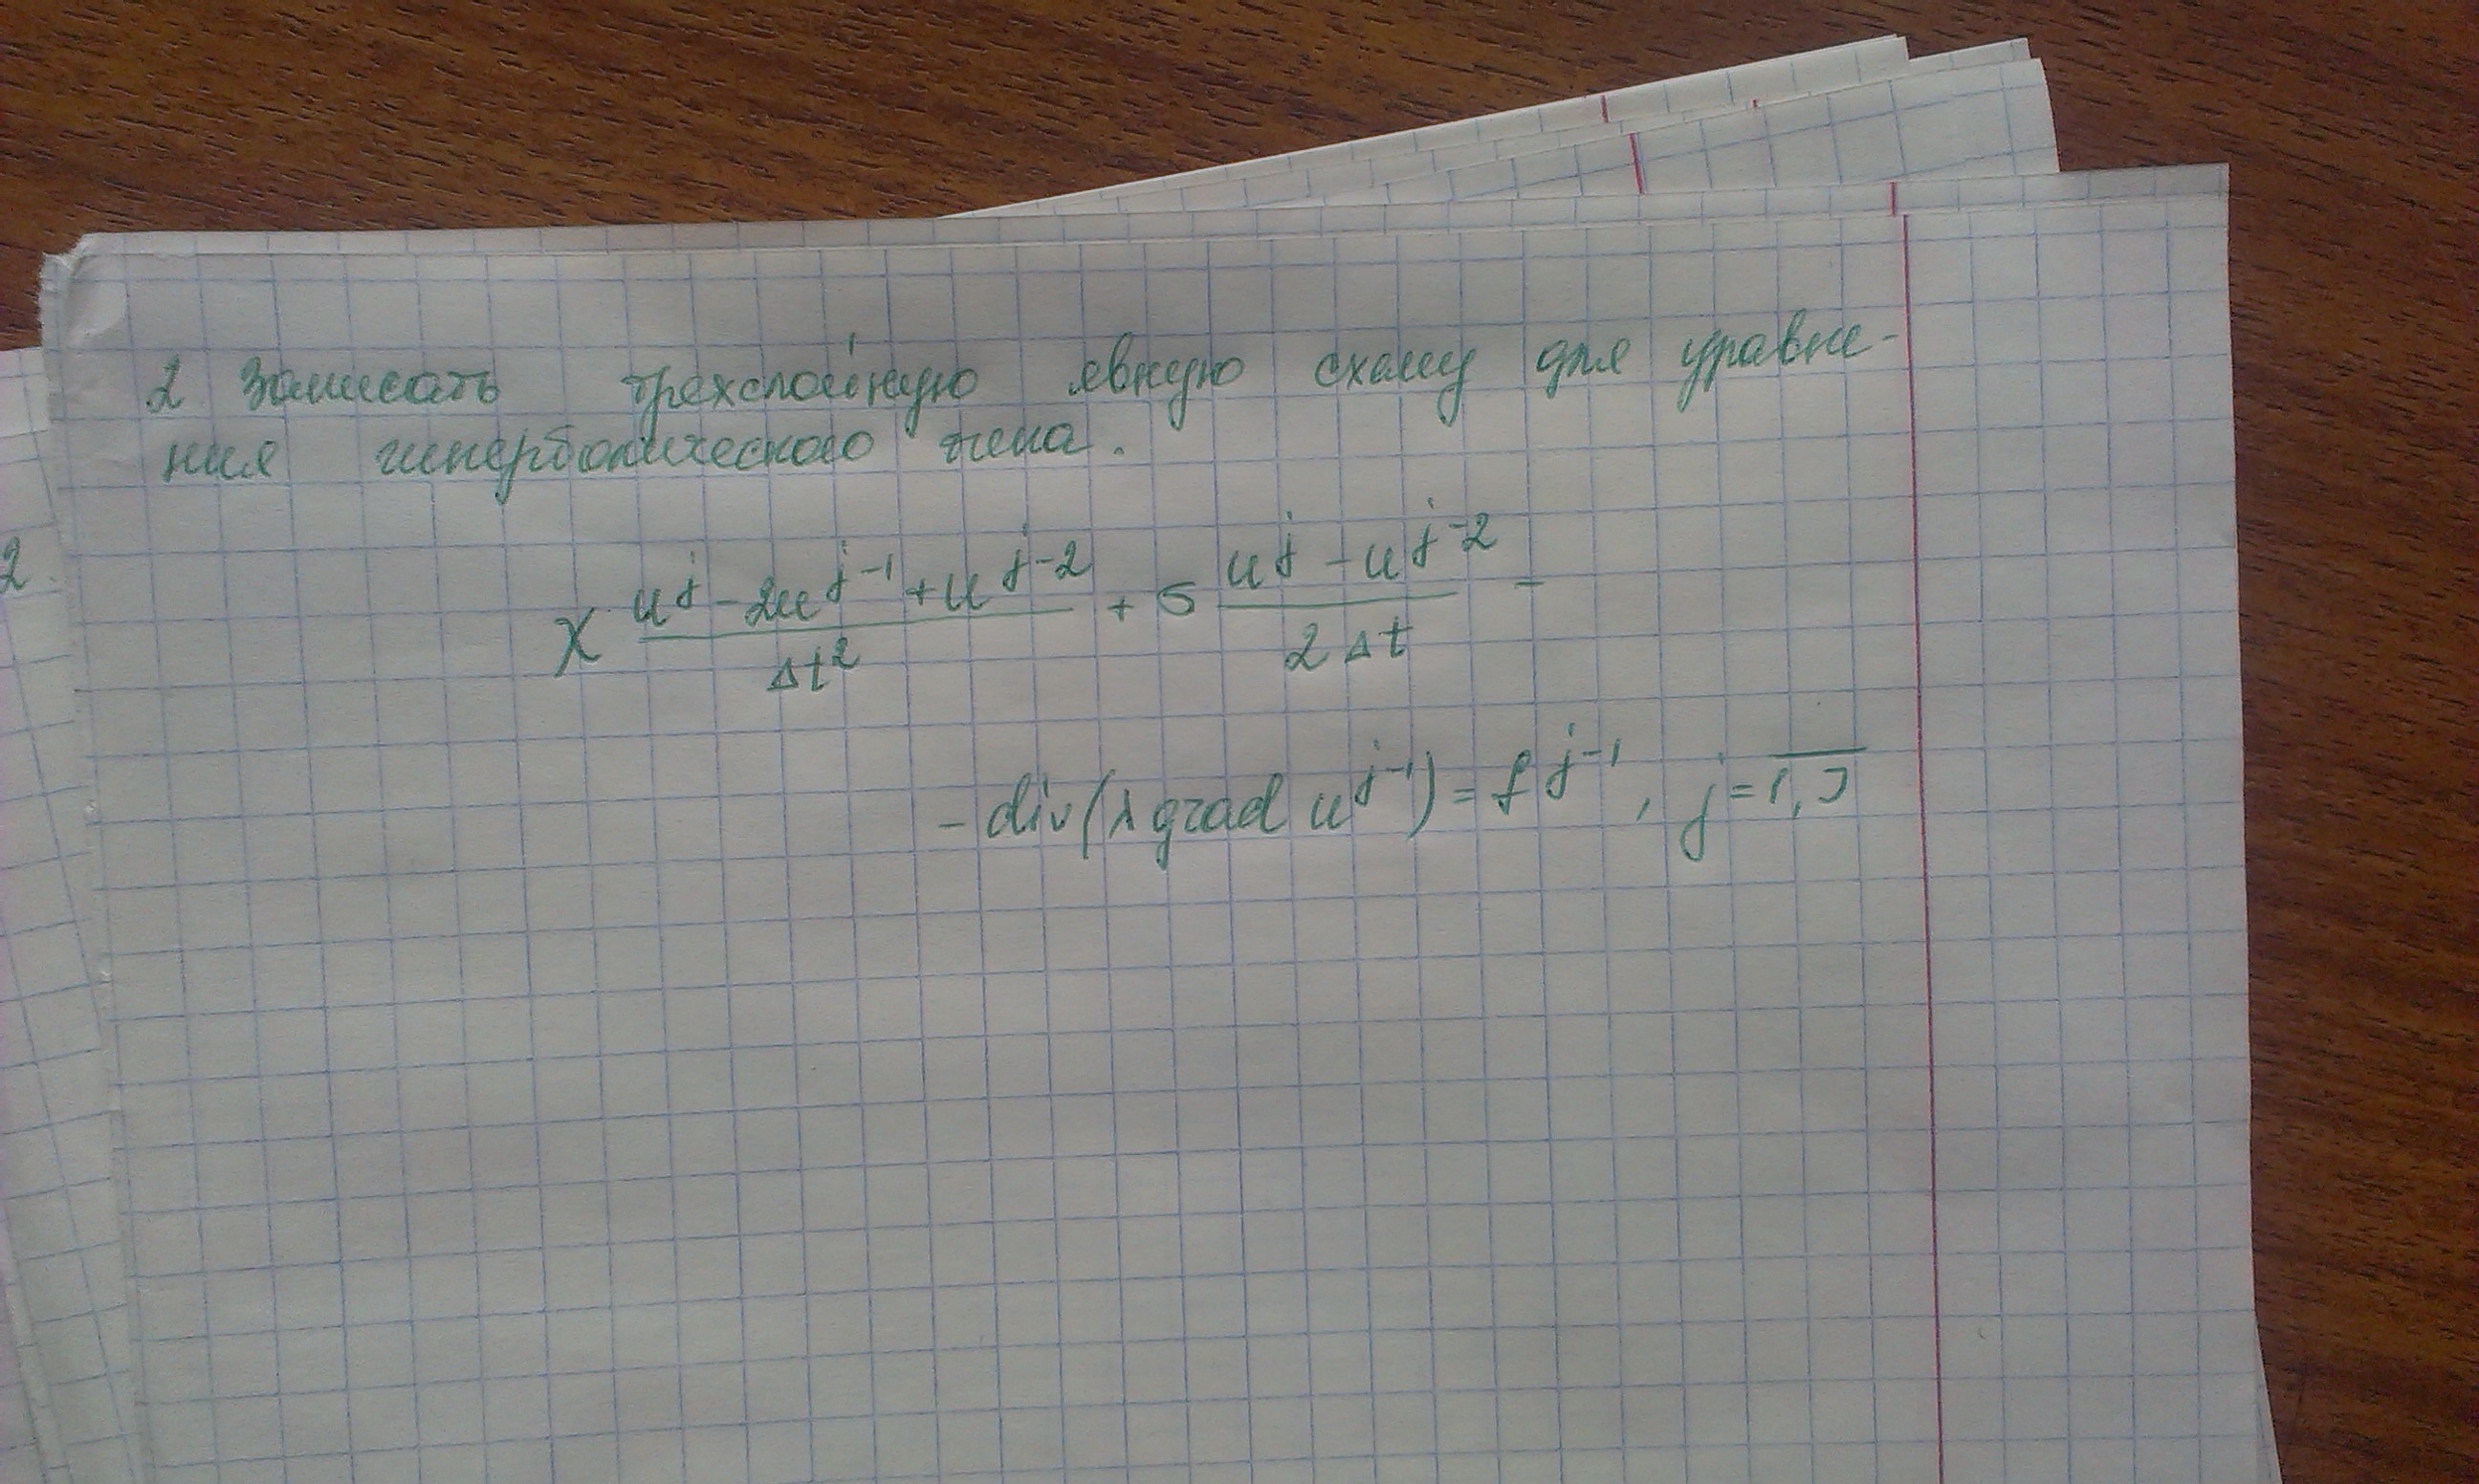 2 Записать трехслойную явную схему для уравне-
ния гиперболического типа.
χ (u^j - 2u^{j-1} + u^{j-2}) / Δt² + σ (u^j - u^{j-2}) / 2Δt -
- div(λ grad u^{j-1}) = f^{j-1}, j = \overline{1, J}
2.